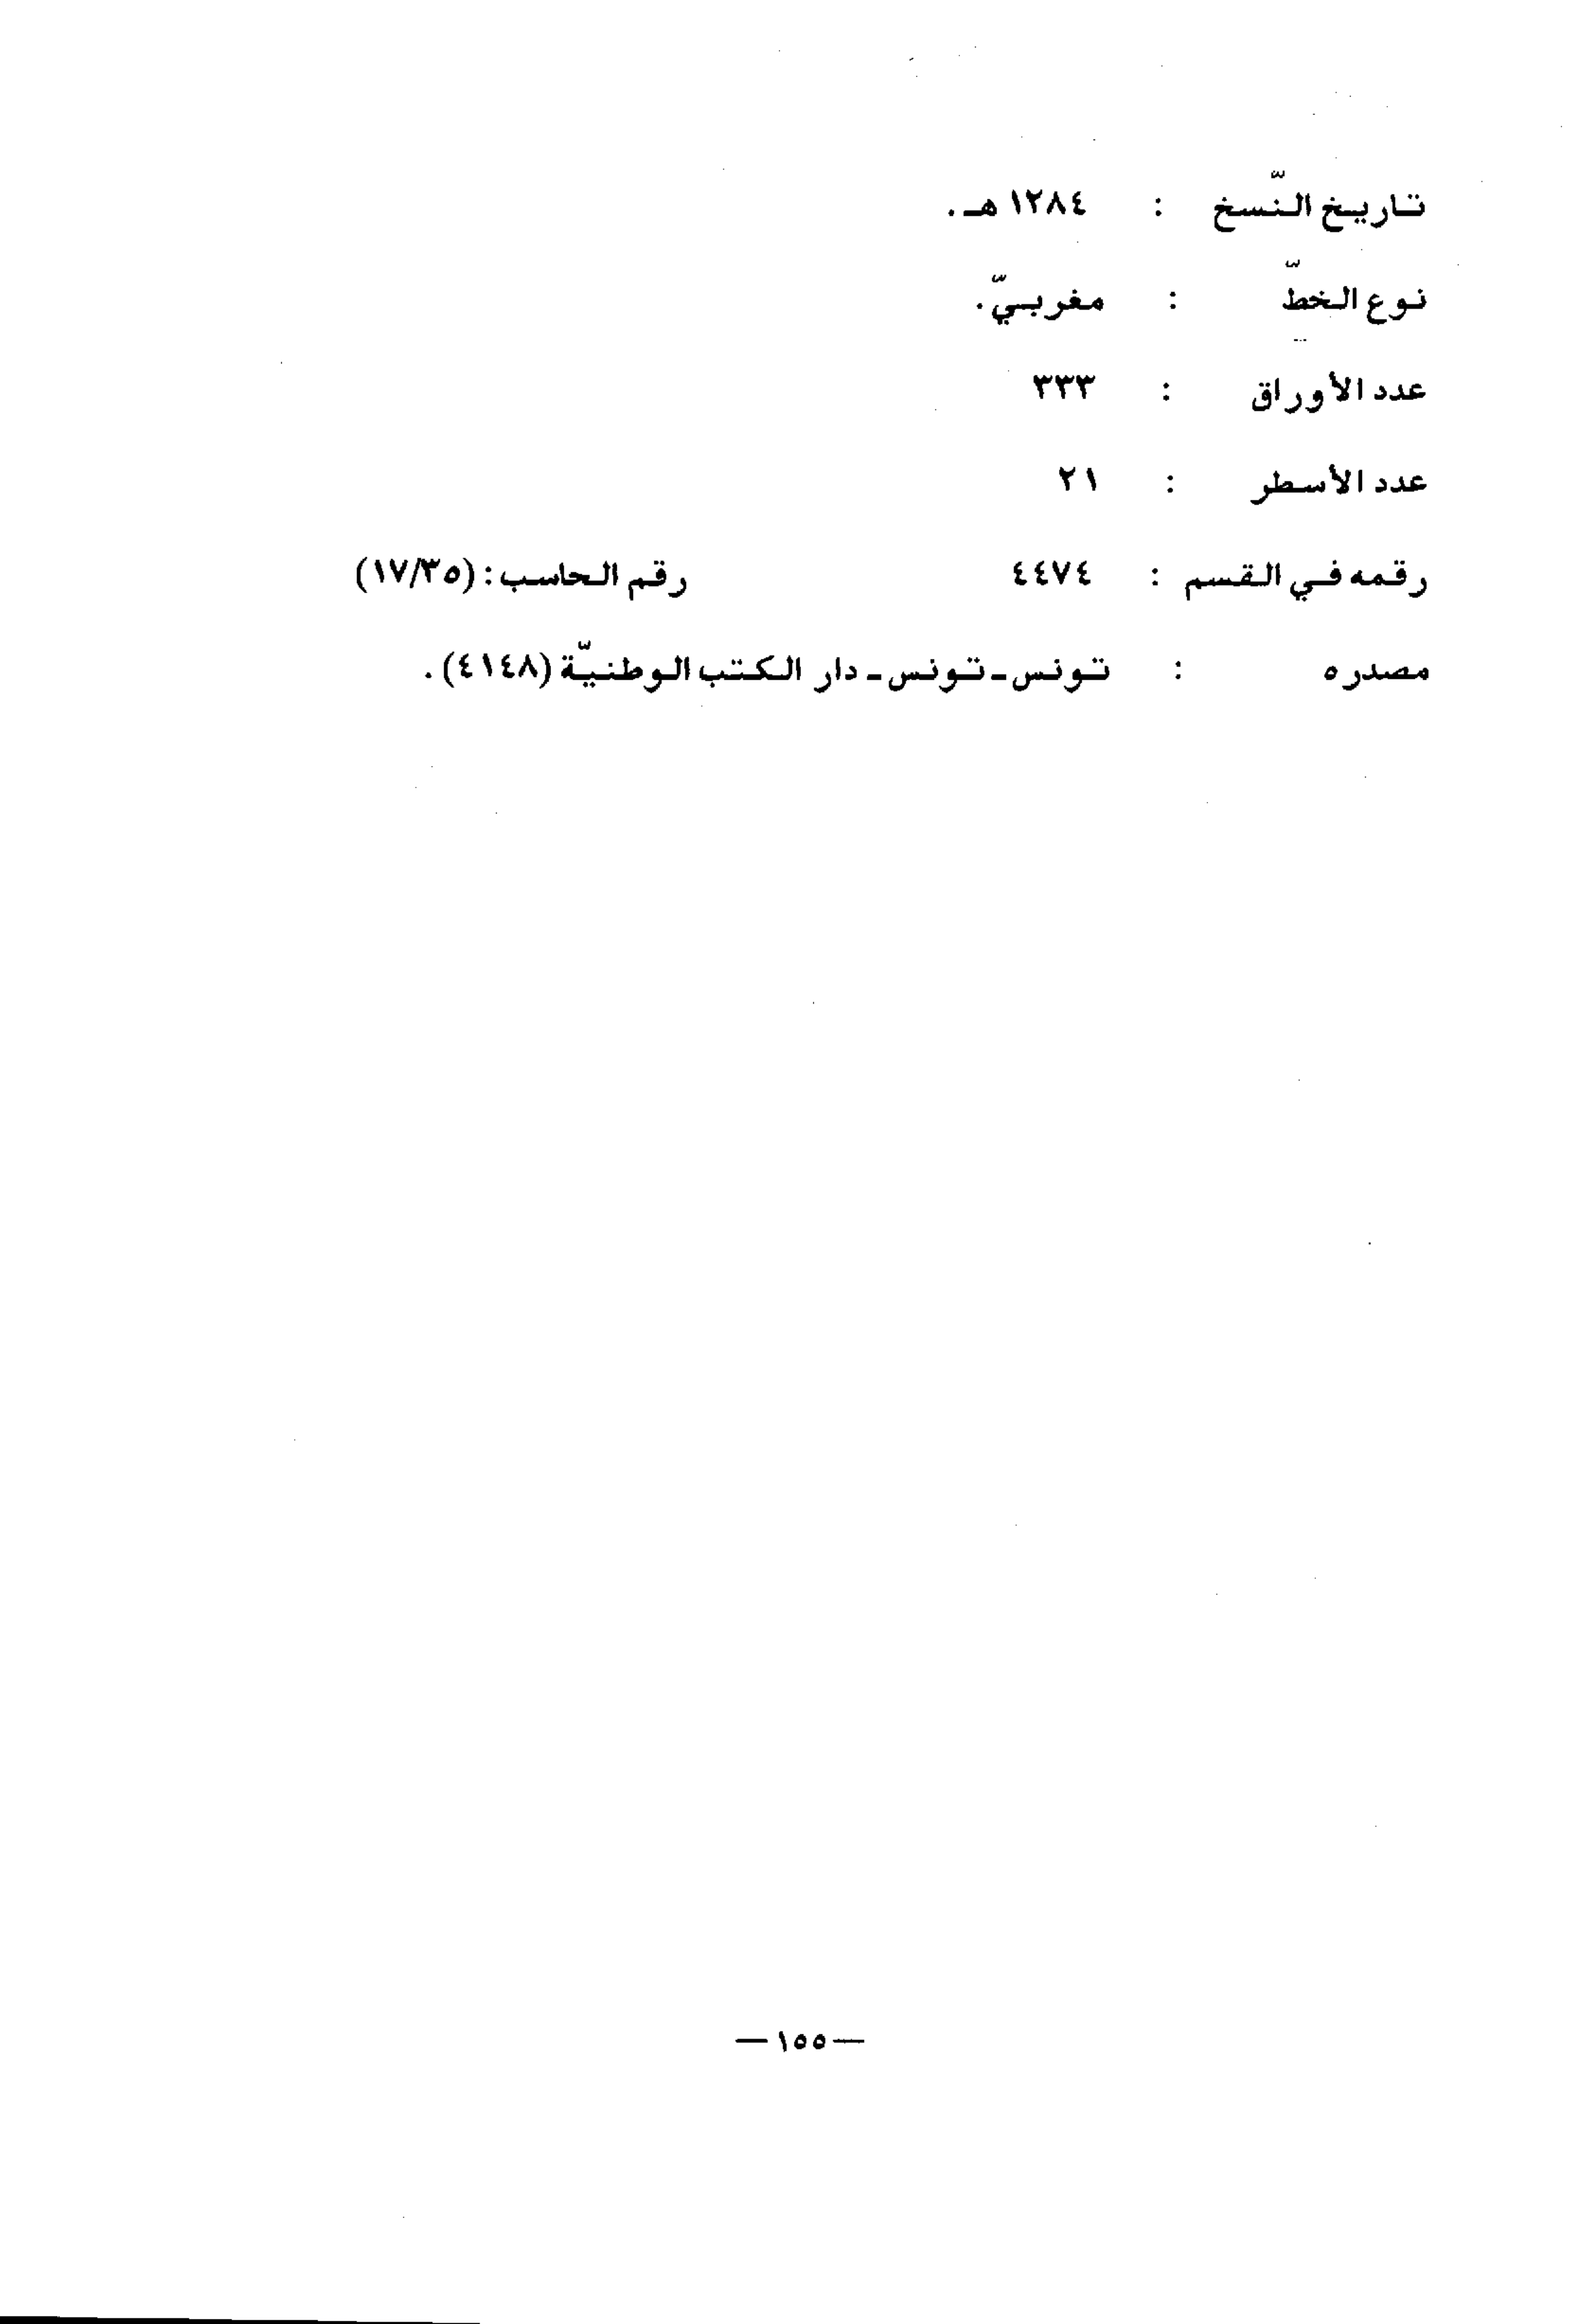 تاريخ النّسخ : ١٢٨٤ هـ .
نوع الخطّ : مغربيّ .
عدد الأوراق : ٣٣٣
عدد الأسطر : ٢١
رقمه في القسم : ٤٤٧٤ رقم الحاسب : (١٧/٣٥)
مصدره : تونس ـ تونس ـ دار الكتب الوطنيّة (٤١٤٨) .
— ١٥٥ —